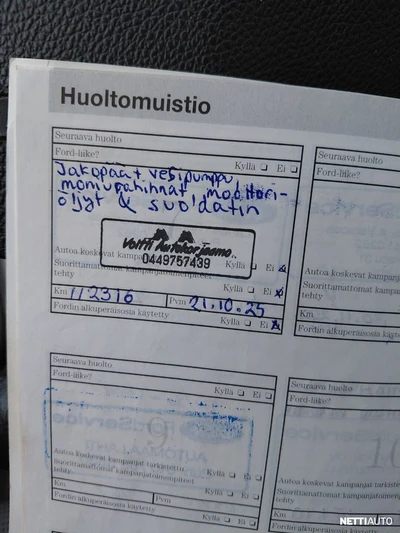 Huoltomuistio
Seuraava huolto
Ford-liike? Kyllä Ei
Jakopää + vesipumppu
moniurahihnat moottori-
öljyt & suodatin
Voitti Autokorjaamo
0449757439
Autoa koskevat kampanjat Kyllä Ei
Suorittamattomat kampanjatoimenpiteet
tehty Kyllä Ei
Km 112316 Pvm 21.10.25
Fordin alkuperäisosia käytetty Kyllä Ei
Seuraava huolto
Ford-liike? Kyllä Ei
Autoa koskevat kampanjat tarkistettu
Suorittamattomat kampanjatoimenpiteet Kyllä Ei
tehty Kyllä Ei
Km Pvm
Fordin alkuperäisosia käytetty Kyllä Ei
Seuraava huolto
Ford-liike?
Autoa koskevat kampanjat
Suorittamattomat kampanja
tehty
Km
Fordin alkuperäisosia
Seuraava huolto
Ford-liike?
Autoa koskevat kampanjat tar
Suorittamattomat kampanjatoimen
tehty
Km
Fordin alkuperäisosia käytetty
NETTIAUTO